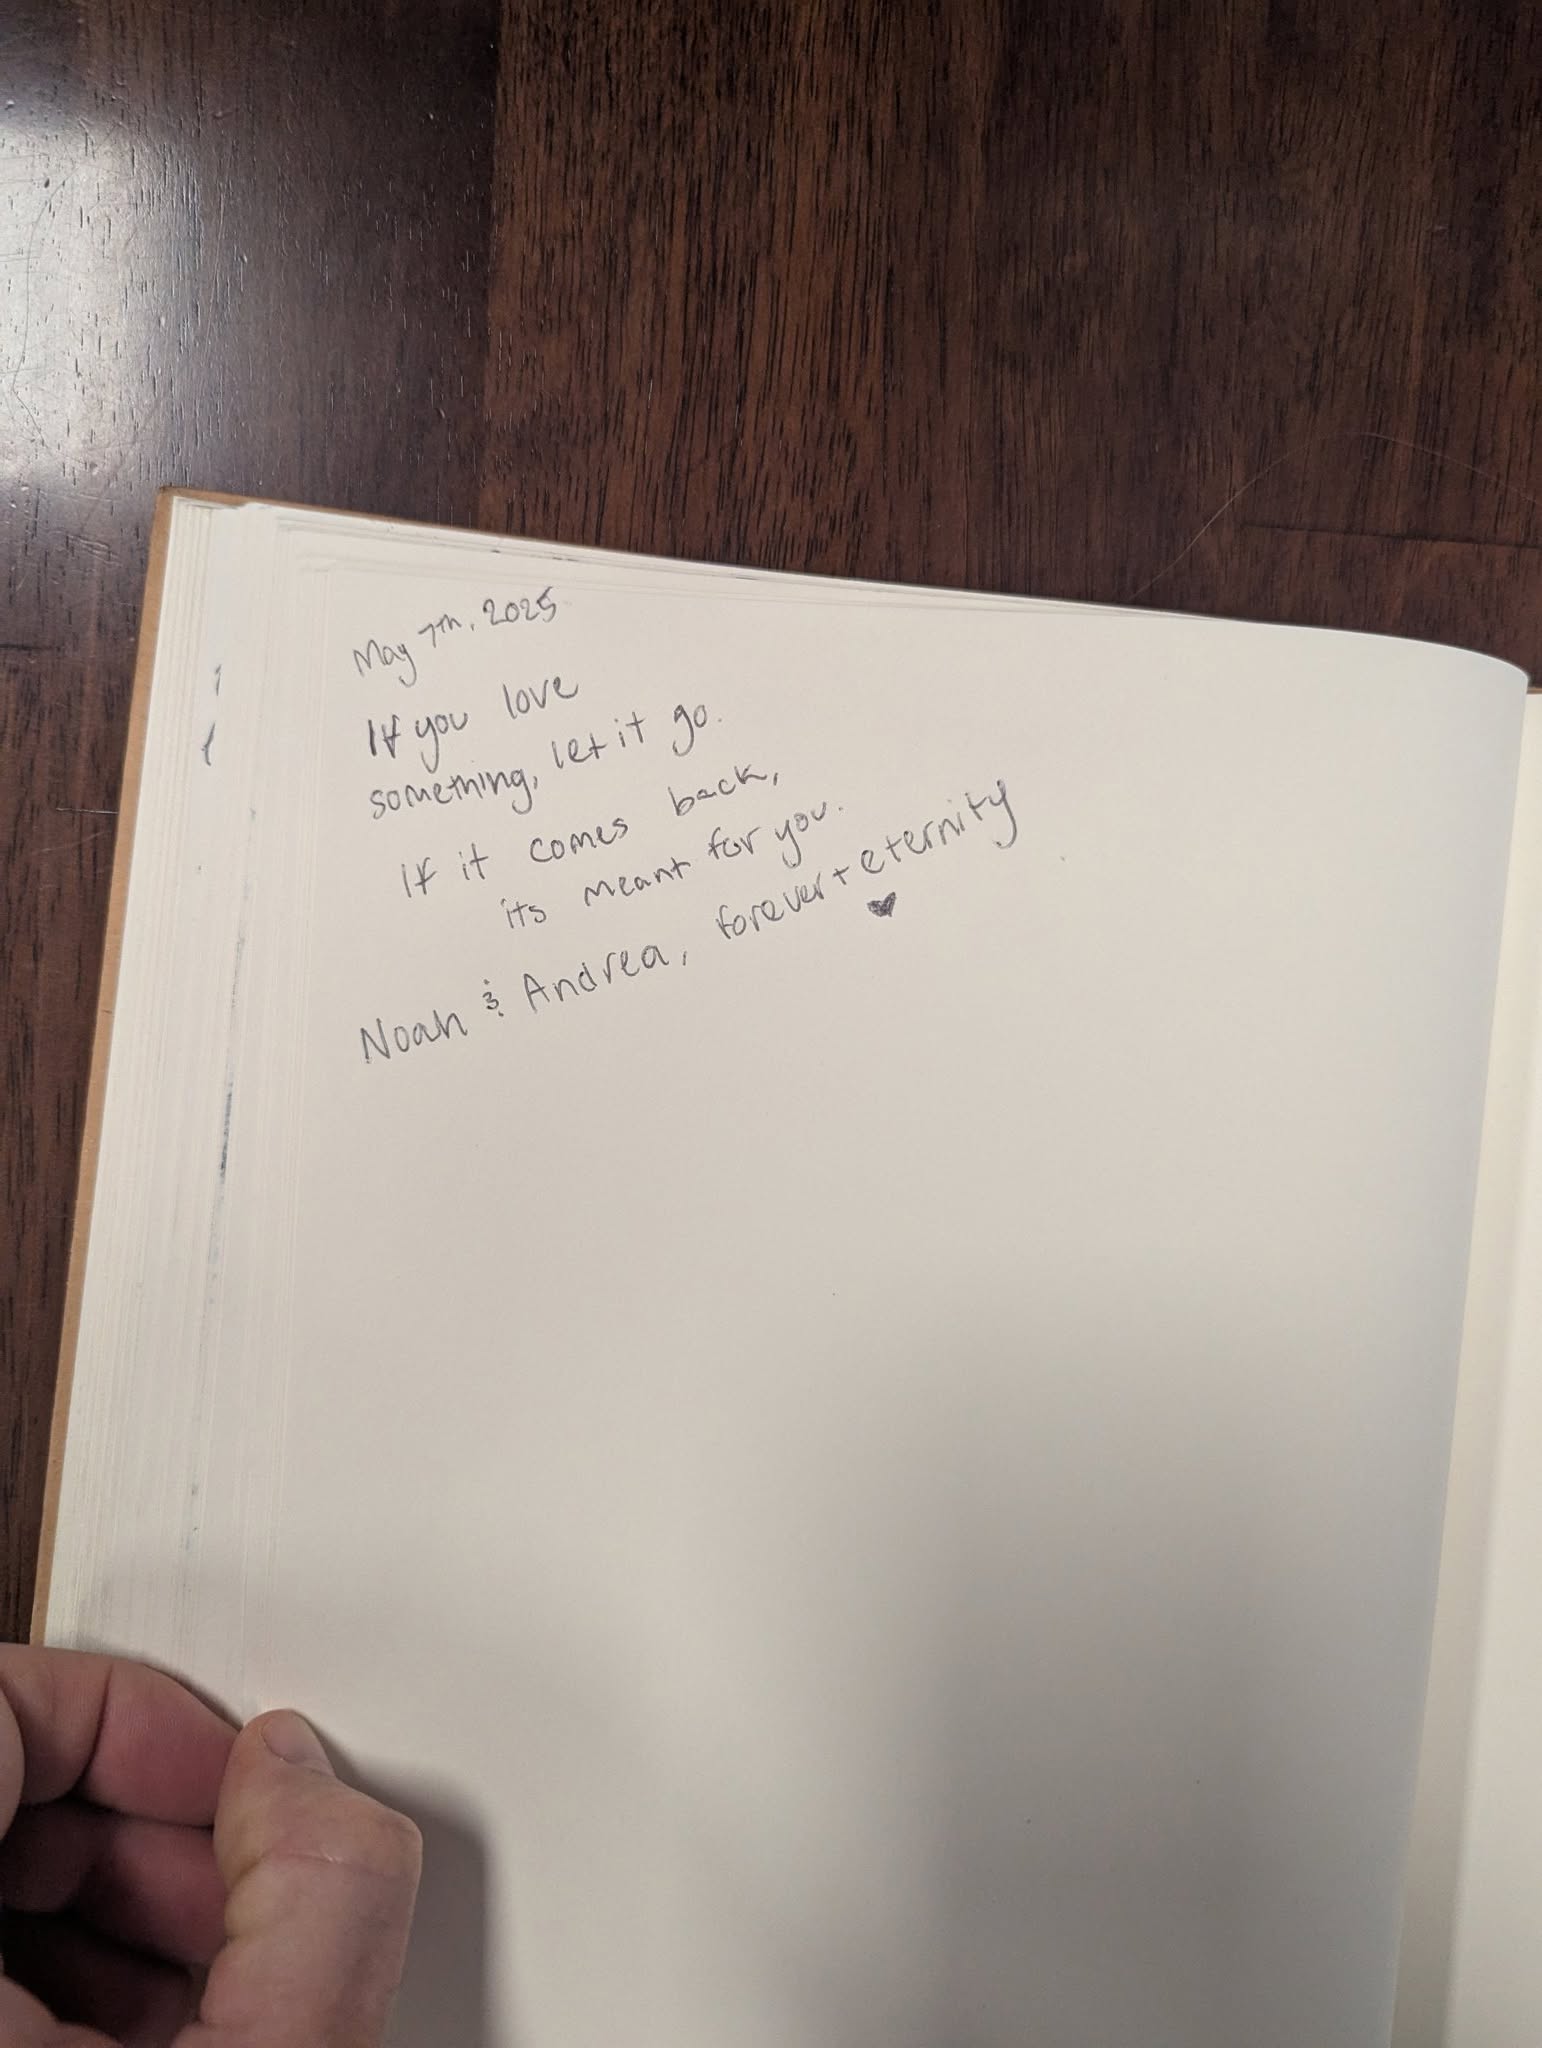 May 7th, 2025
If you love
something, let it go.
If it comes back,
its meant for you.
Noah & Andrea, forever + eternity
♥